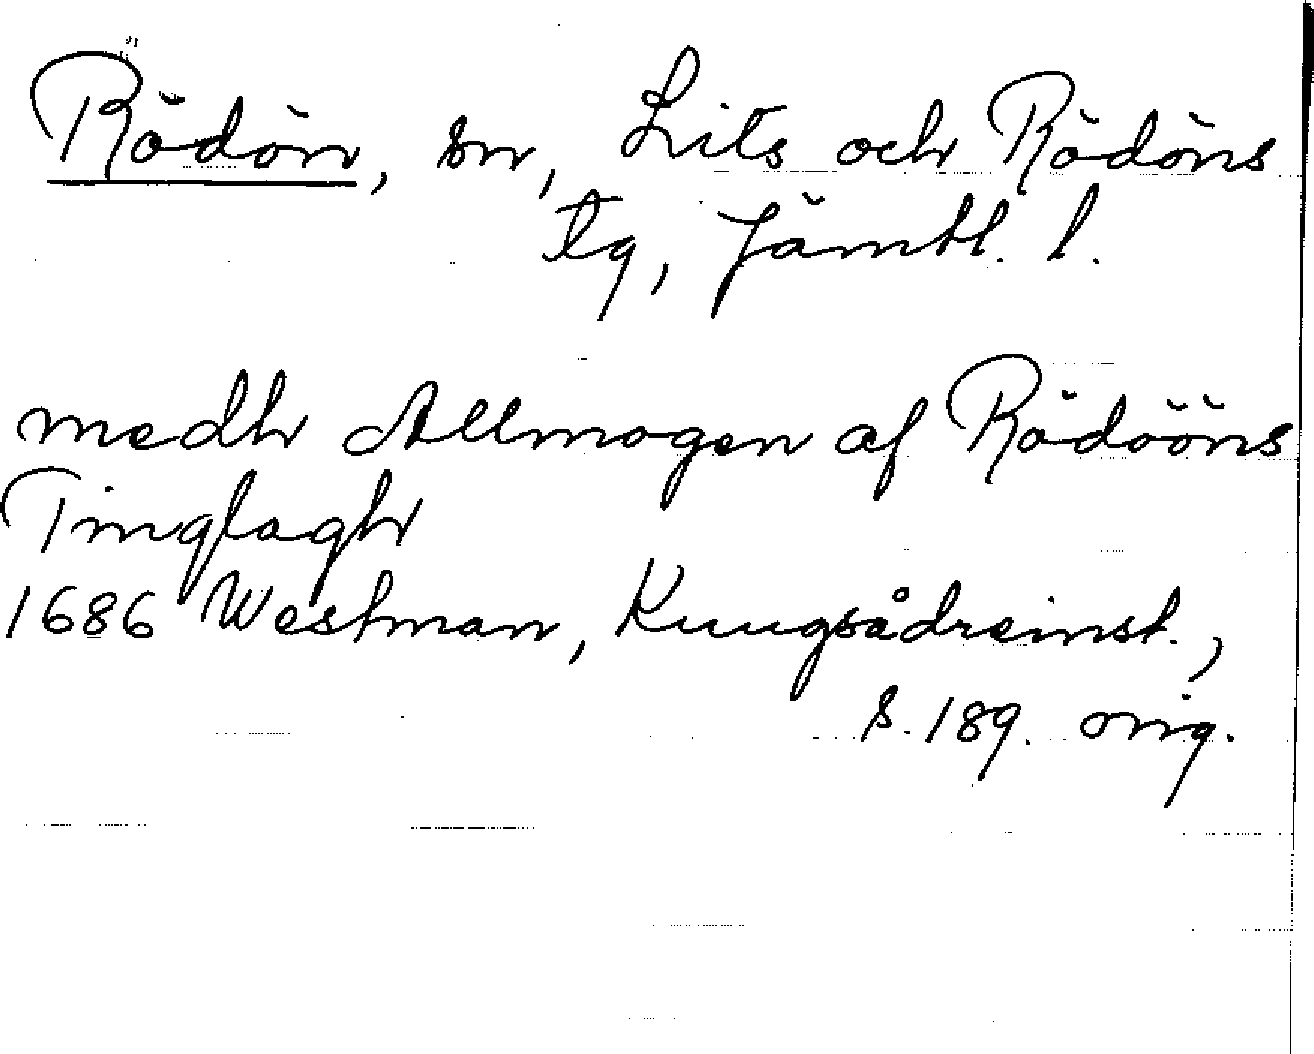 Rödön, sn, Lits och Rödöns
tg, Jämtl. l.
medh Allmogen af Rödööns
Tinglagh
1686 Westman, Kungsådreinst.,
s. 189. orig.